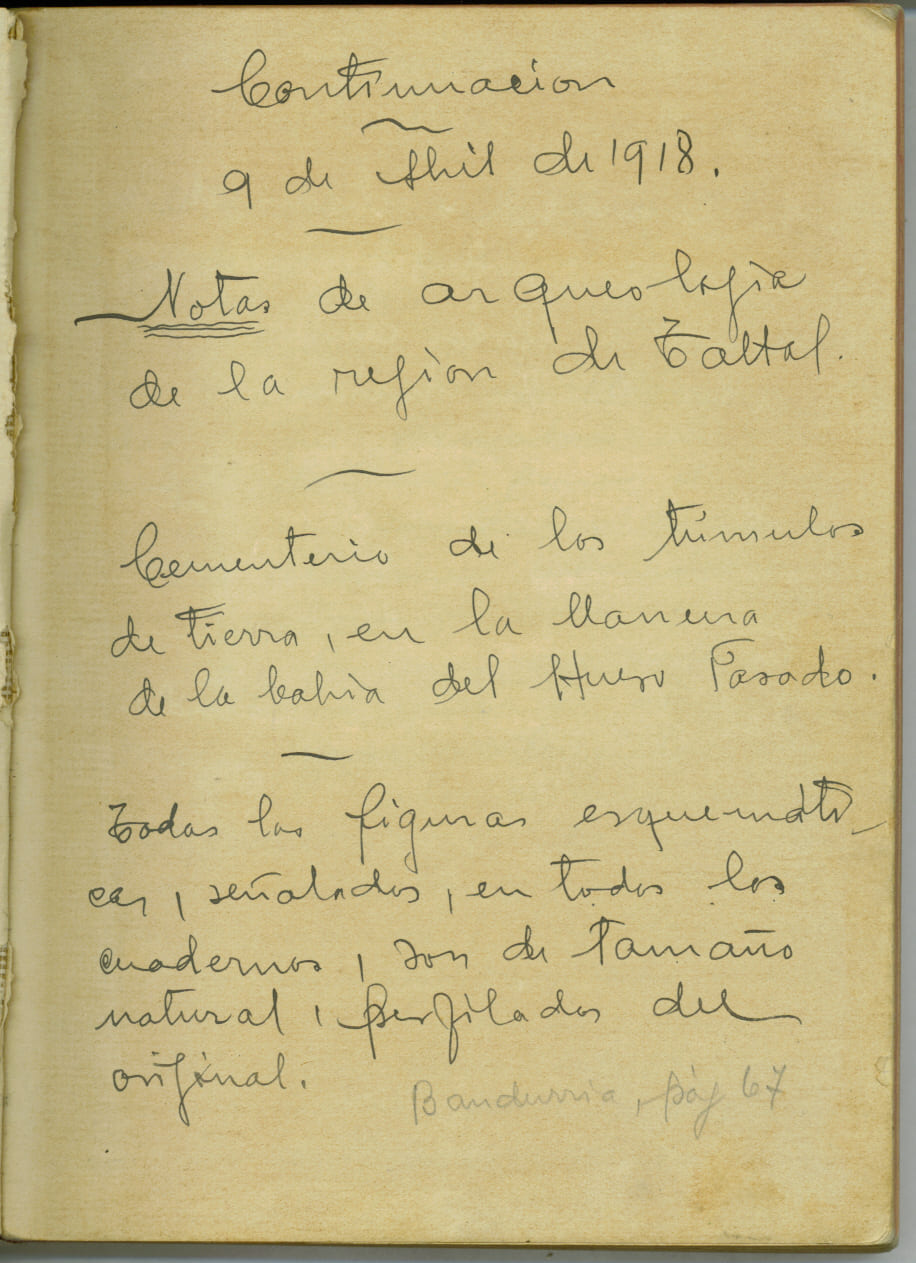 Continuacion
9 de Abril de 1918.
Notas de arqueologia
de la region de Taltal.
Cementerio de los túmulos
de tierra, en la llanura
de la bahia del Hueso Parado.
Todas las figuras esquemáti-
cas, señaladas, en todos los
cuadernos, son de tamaño
natural, perfilados del
original.
Bandurria, pàg 67